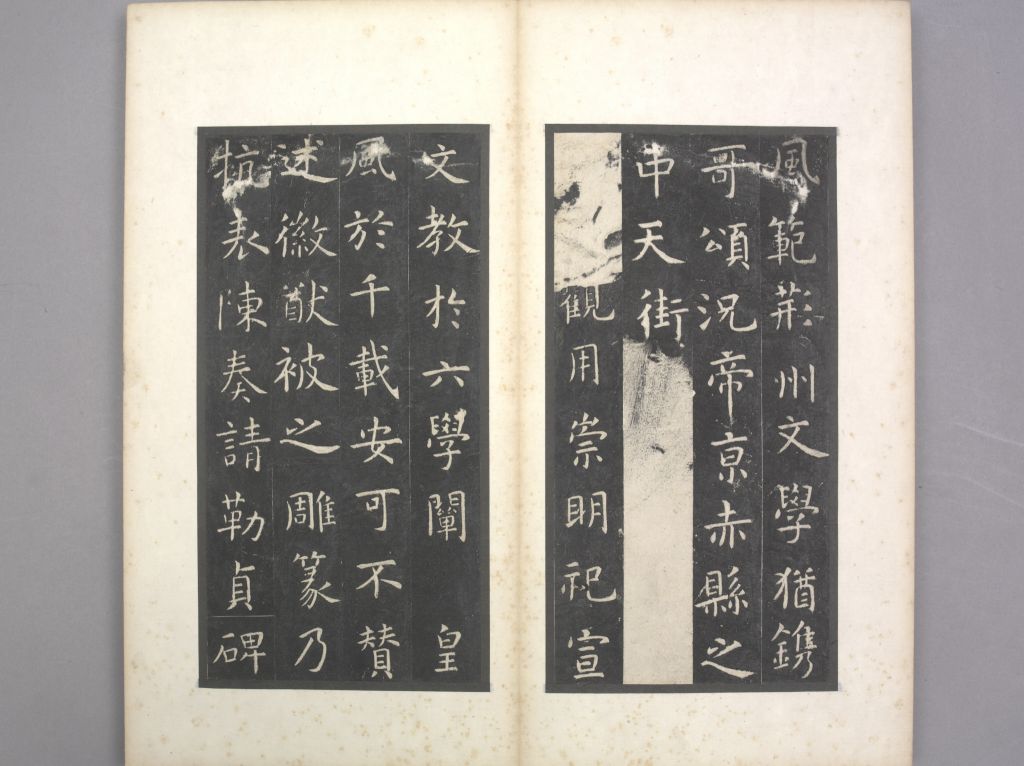 風範荊州文學猶鐫
哥頌況帝京赤縣之
中天街
觀用崇明祀宣
文教於六學闡皇
風於千載安可不贊
述徽猷被之雕篆乃
抗表陳奏請勒貞碑